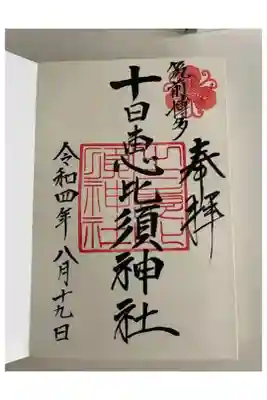 筑前博多
奉拝
十日恵比須神社
令和四年八月十九日